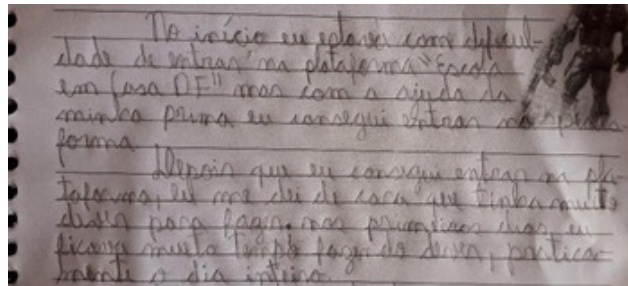 No início eu estava com dificul-
dade de entrar na plataforma "Escola
em Casa DF" mas com a ajuda da
minha prima eu consegui entrar na
forma.
Depois que eu consegui entrar na pla-
taforma, eu me dei de cara que tinha muito
dever para fazer, nos primeiros dias, eu
ficava muito tempo fazendo dever, pratica-
mente o dia inteiro.